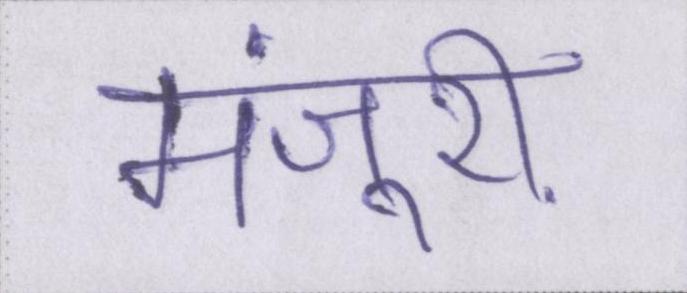 मंजूरी